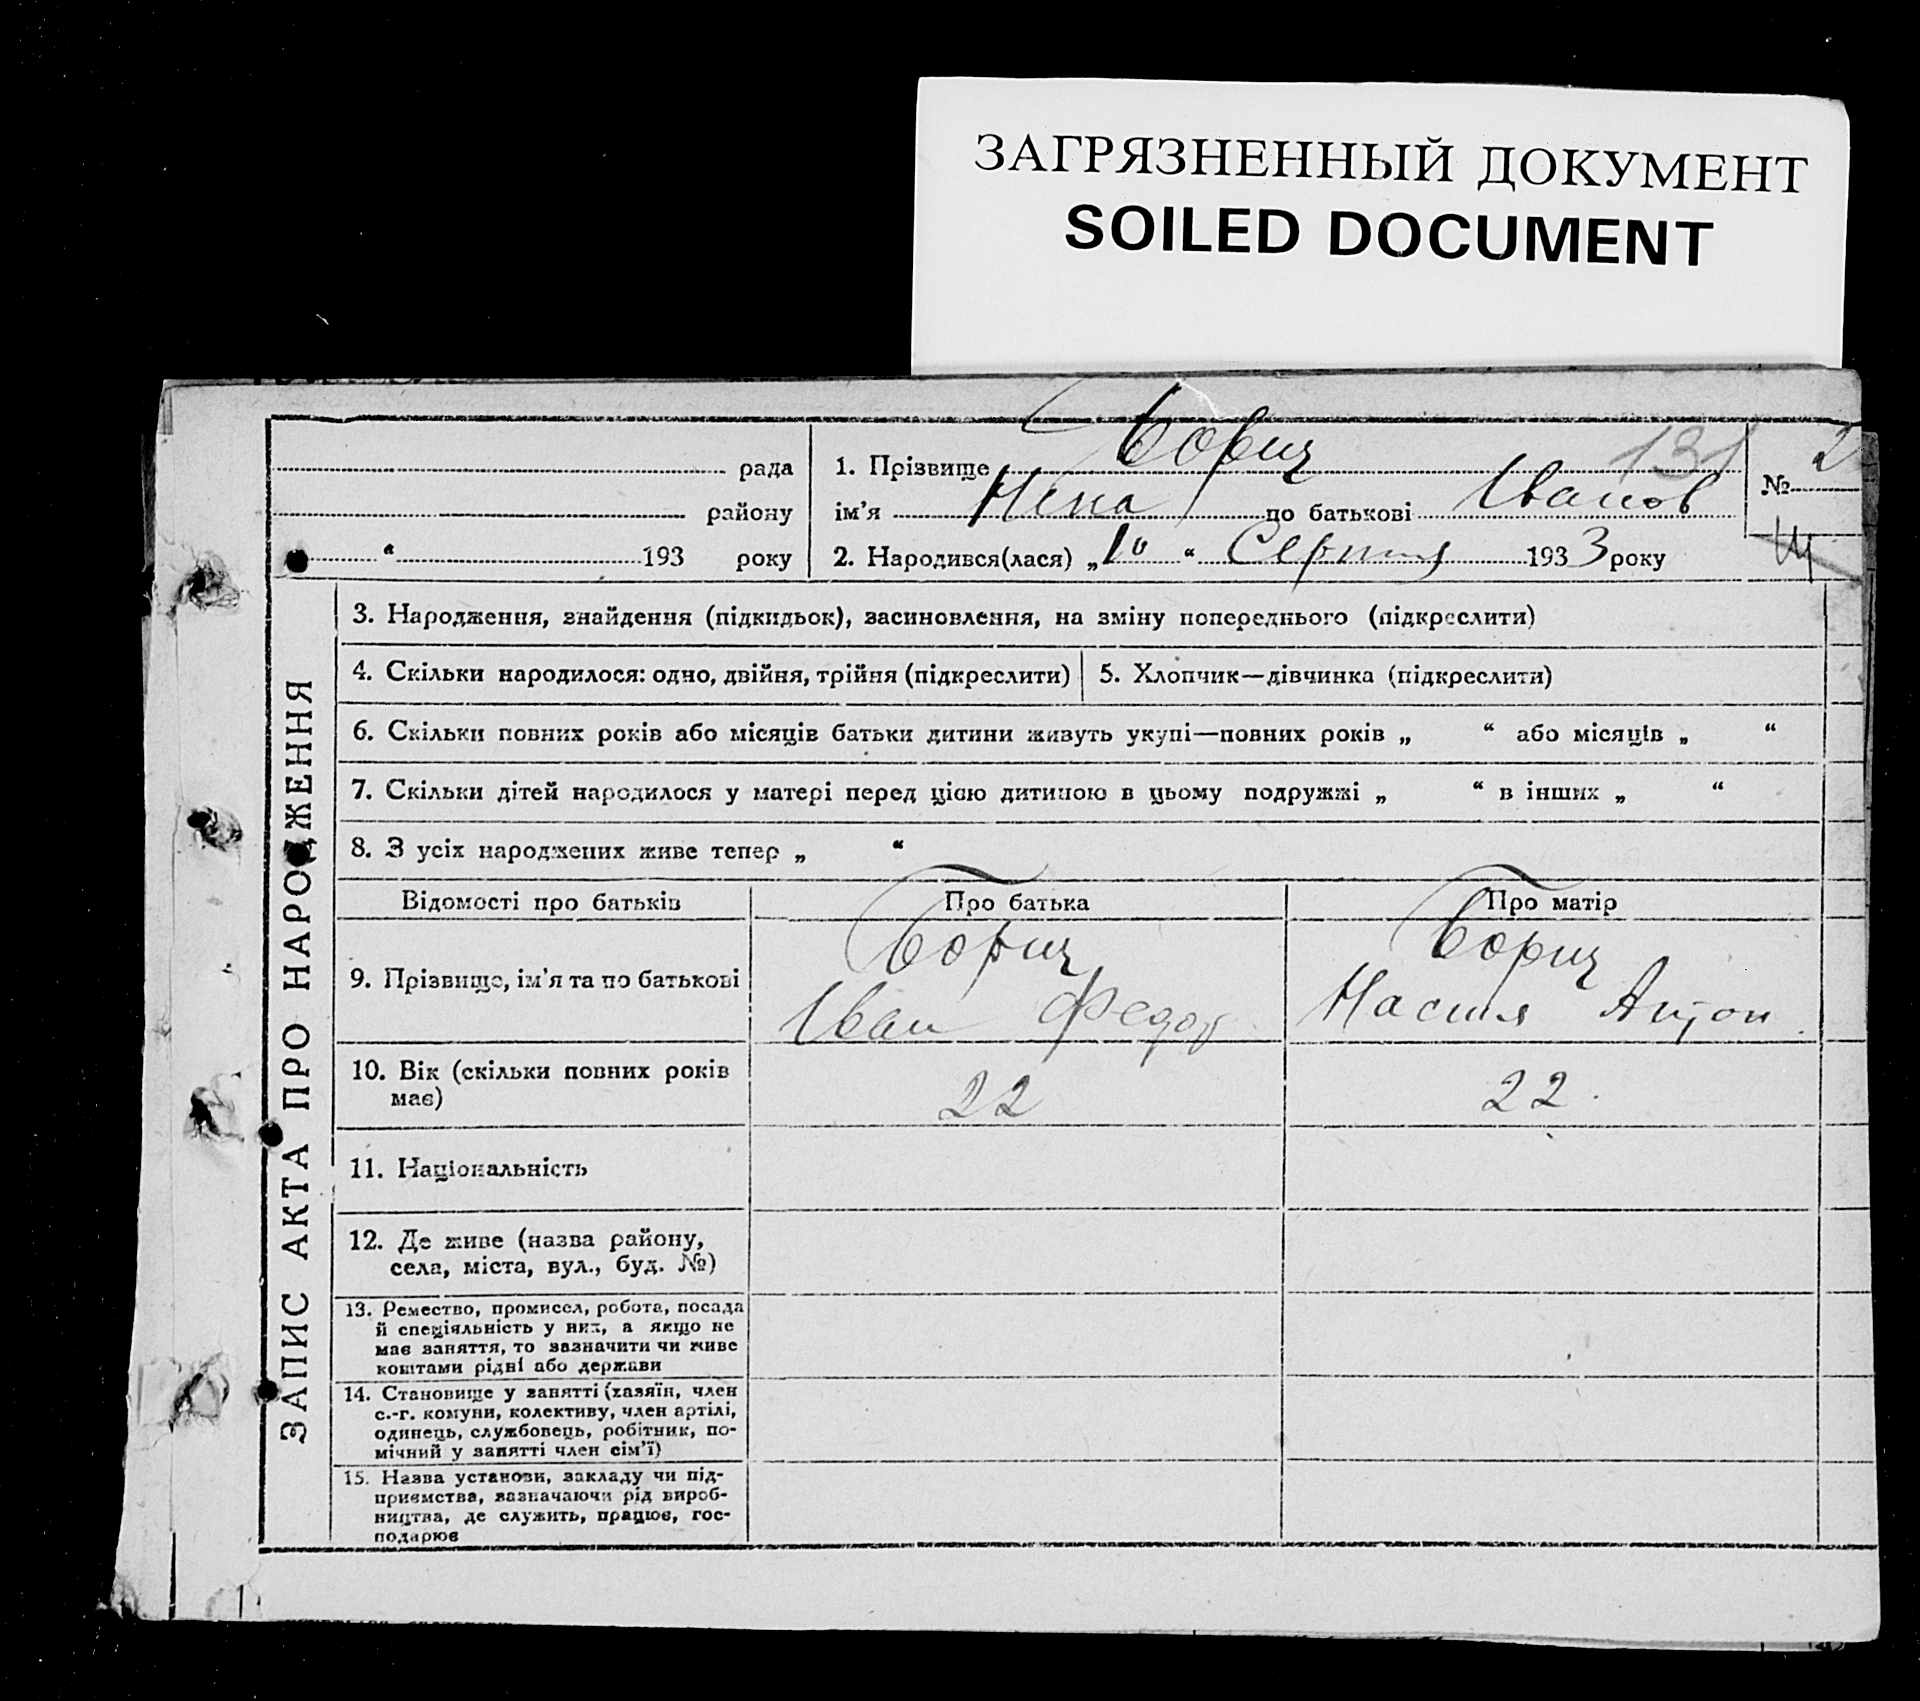 ЗАГРЯЗНЕННЫЙ ДОКУМЕНТ
SOILED DOCUMENT
рада
району
“ 193 року
1. Прізвище Борищ 131
ім’я Ніна по батькові Іванов
2. Народився(лася) „10 “ Серпня 1933 року
№ 2
ЗАПИС АКТА ПРО НАРОДЖЕННЯ
3. Народження, знайдення (підкидьок), засиновлення, на зміну попереднього (підкреслити)
4. Скільки народилося: одно, двійня, трійня (підкреслити)
5. Хлопчик—дівчинка (підкреслити)
6. Скільки повних років або місяців батьки дитини живуть укупі—повних років „ “ або місяців „ “
7. Скільки дітей народилося у матері перед цією дитиною в цьому подружжі „ “ в інших „ “
8. З усіх народжених живе тепер „ “
Відомості про батьків
Про батька
Про матір
9. Прізвище, ім’я та по батькові
Борищ
Іван Федор
Борищ
Настя Антон
10. Вік (скільки повних років
має)
22
22.
11. Національність
12. Де живе (назва району,
села, міста, вул., буд. №)
13. Ремество, промисел, робота, посада
й спеціяльність у них, а якщо не
має заняття, то зазначити чи живе
коштами рідні або держави
14. Становище у занятті (хазяїн, член
с.-г. комуни, колективу, член артілі,
одинець, службовець, робітник, по-
мічний у занятті член сім’ї)
15. Назва установи, закладу чи під-
приємства, зазначаючи рід вироб-
ництва, де служить, працює, гос-
подарює